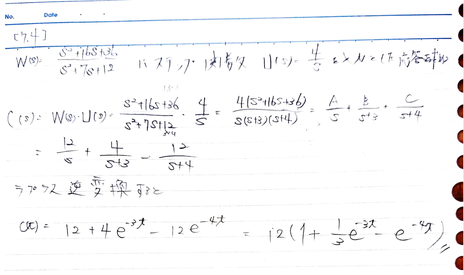 No.
Date
[7.4]
W(s) = \frac{s^2+16s+36}{s^2+7s+12} U(s) = \frac{4}{s}
C(s) = W(s)·U(s) = \frac{s^2+16s+36}{s^2+7s+12} · \frac{4}{s} = \frac{4(s^2+16s+36)}{s(s+3)(s+4)} = \frac{A}{s} + \frac{B}{s+3} + \frac{C}{s+4}
= \frac{12}{s} + \frac{4}{s+3} - \frac{12}{s+4}
ラプラス逆変換すると
C(t) = 12 + 4e^{-3t} - 12e^{-4t} = 12(1 + \frac{1}{3}e^{-3t} - e^{-4t})